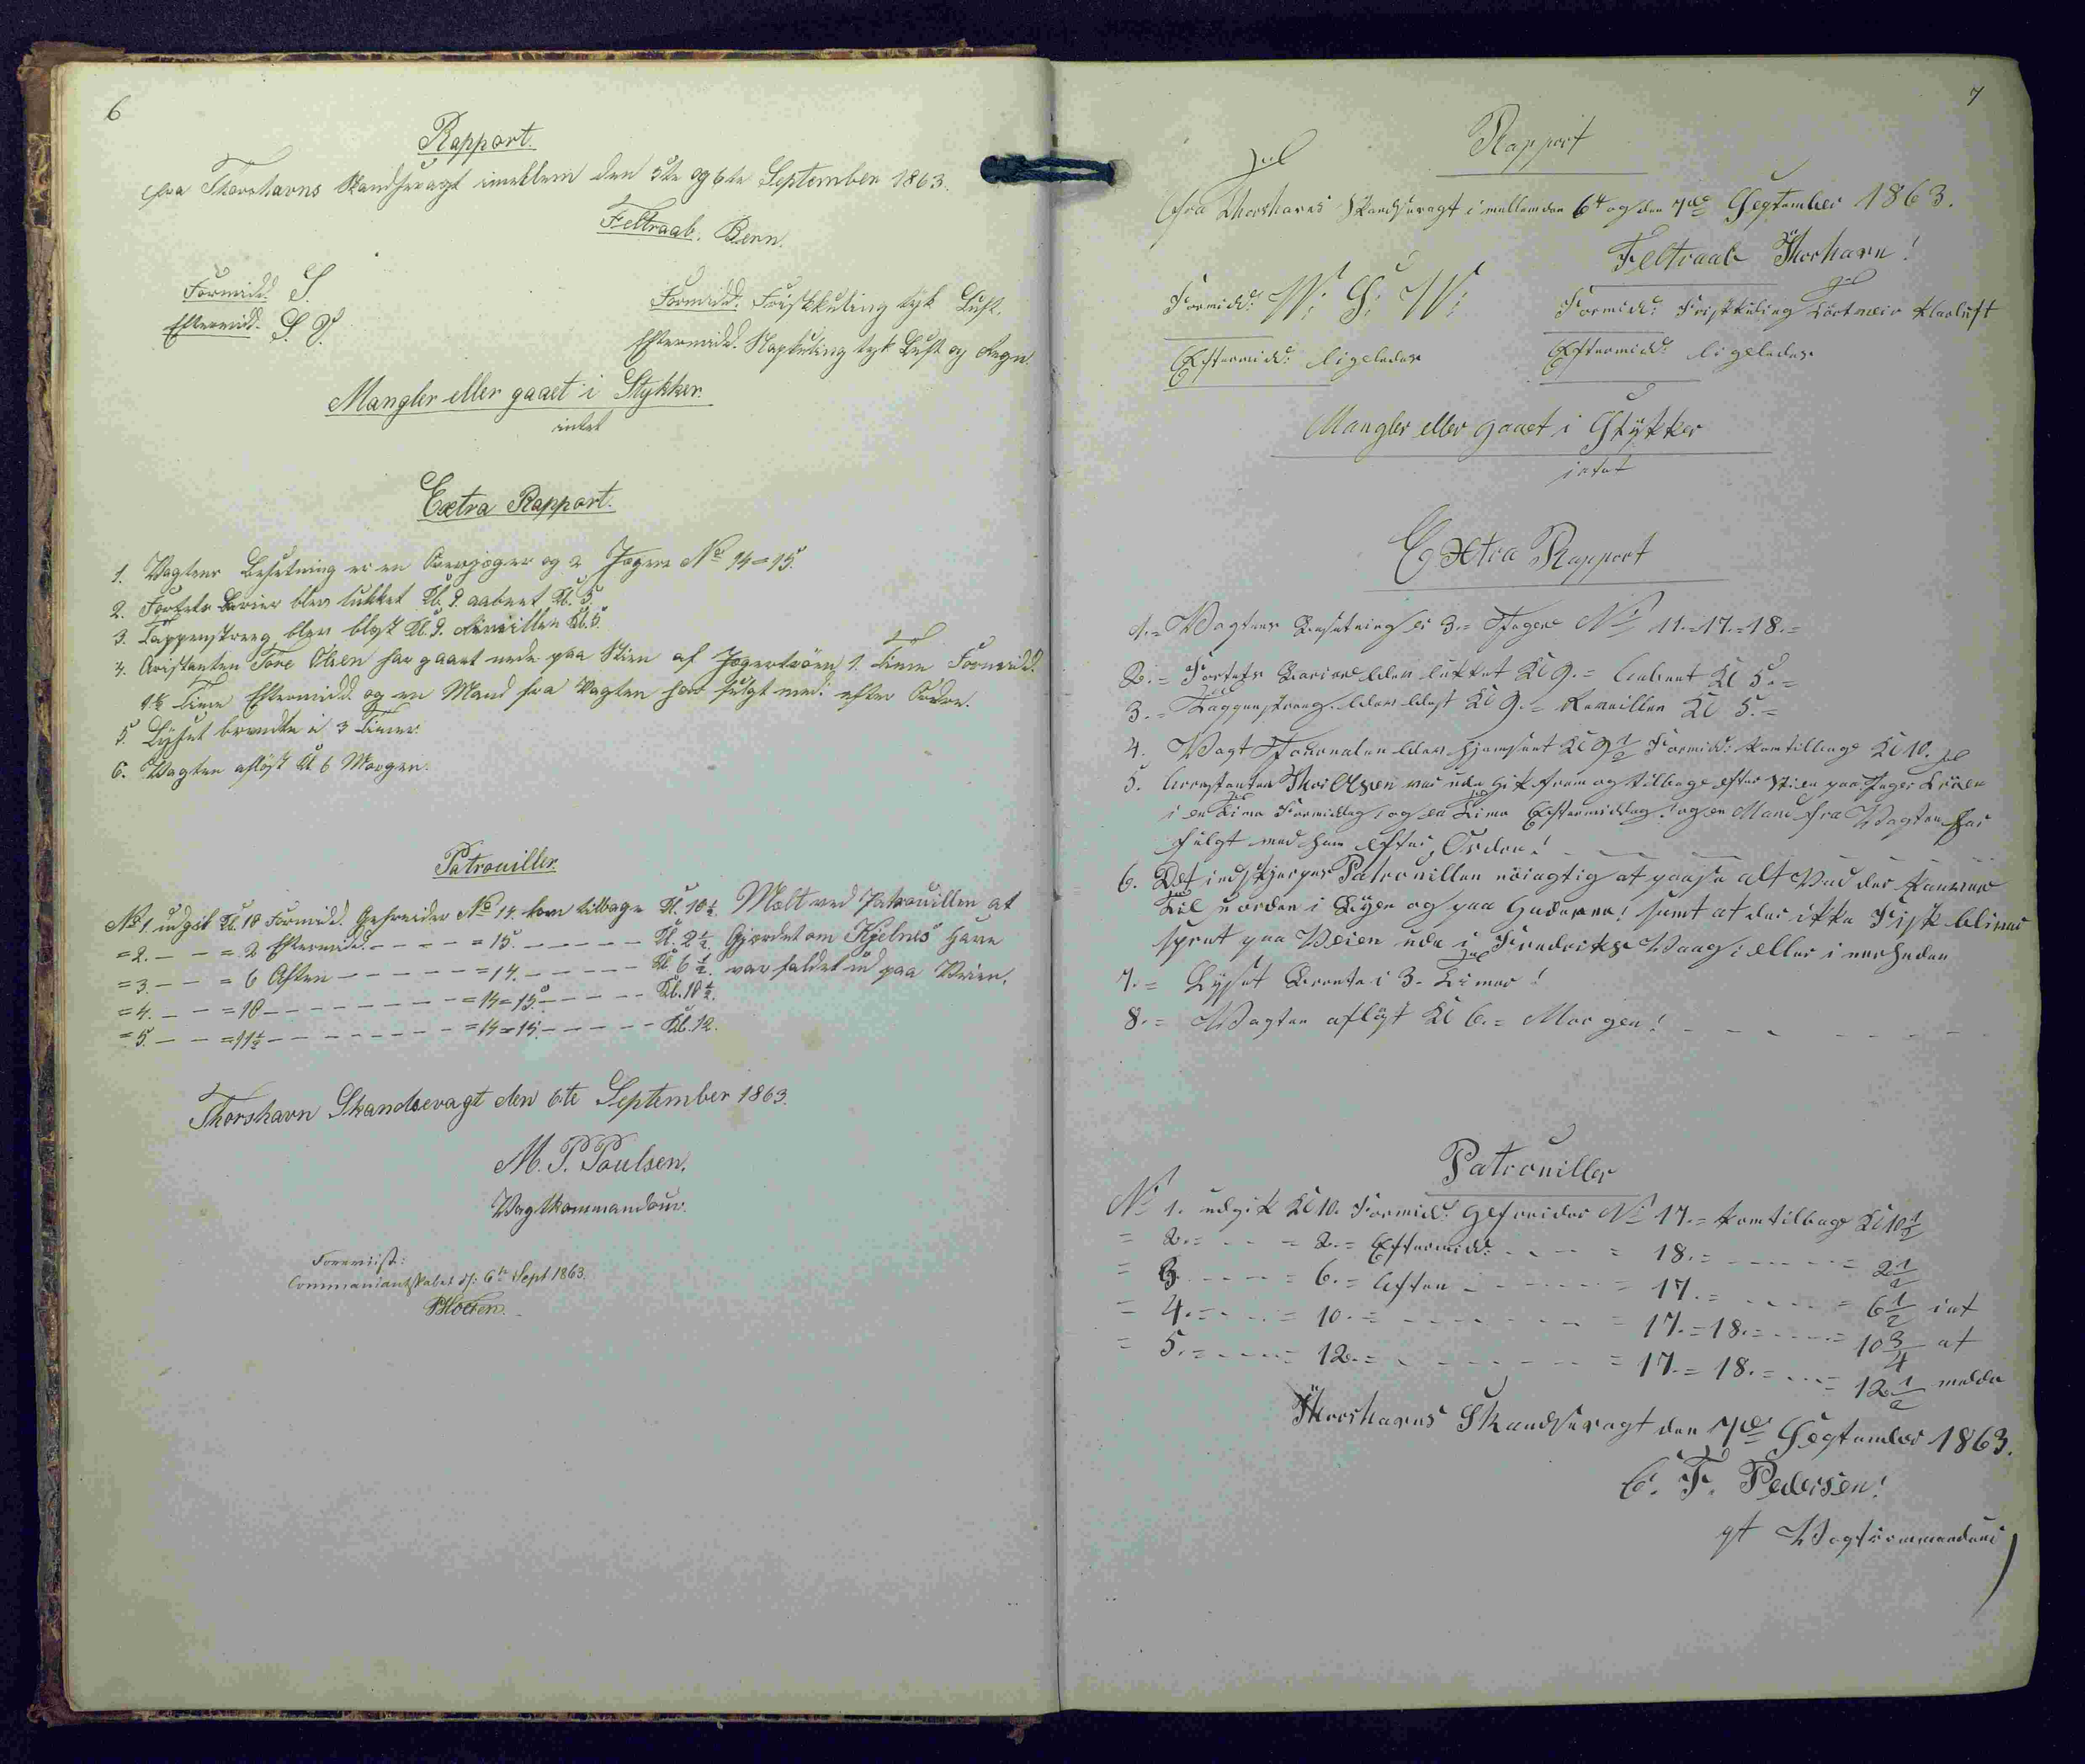 6
Rapport.
fra Thorshavns Skandsevagt imellem den 5te og 6te September 1863.
Feltraab. Bern.
Formidd. S.
Eftermidd. S. V.
Formidd. Friskkuling tyk Luft.
Eftermidd. Rapkuling tyk Luft og Regn.
Mangler eller gaaet i Stykker.
intet
Extra Rapport.
1. Vagtens Besætning er en Overjæger og 2 Jægere No 14=15.
2. Fortets Barier blev lukket Kl. 9. aabnet Kl. 5.
3. Tappenstreg blev blæst Kl. 9. Reveillen Kl. 5.
4. Arestanten Tore Olsen har gaaet nede paa Stien af Jægertrøen 1. Time Formidd.
1½ Time Eftermidd. og en Mand fra Vagten har fulgt med efter Ordre.
5. Lyset brændte i 3 Timer.
6. Vagten afløst Kl 6 Morgen.
Patrouiller
No 1 udgik Kl. 10 Formidd. Gefreider No 14. kom tilbage Kl. 10½. Meldt ved Patrouillen at
=2. — — = 2 Eftermidd. — — — — = 15. — — — — — Kl. 2½. Gjærdet om Kjelnes Have
=3. — — = 6 Aften — — — — — = 14. — — — — — Kl 6½. var faldet ud paa Veien.
=4. — — = 10 — — — — — — — = 14=15. — — — — Kl. 10½.
=5. — — = 11½ — — — — — — — = 14=15. — — — — Kl. 12.
Thorshavn Skandsevagt den 6te September 1863.
M. P. Poulsen.
Vagtkommandeur.
Foreviist:
Commandantskabet d: 6te Sept 1863.
7
Rapport
fra Thorshavns Skandsevagt imellem den 6te og den 7de September 1863.
Feltraab Thorhavn!
Formidd: V: S: V:
Formidd: Friskkuling Tørtveir Klarluft
Eftermidd: ligeledes
Eftermidd: ligeledes
Mangler eller gaaet i Stykker
intet
Extra Rapport
1.= Vagtens Besætning er 3.= Jægere No 11.=17.=18.=
2.= Fortets Bariere blev lukket Kl 9.= Aabnet Kl 5.=
3.= Tappenstreg blev blæst Kl 9.= Reveillen Kl 5.=
4. Vagt Journalen blev hjemsent Kl 9½ Formidd: kom tilbage Kl 10.
5. Arrestanten Thor Olsen var ude gik frem og tilbage efter Stien paa Jæger
i en Time Formiddag, og en Time Eftermiddag! og en Mand fra Vagten har
fulgt med ham efter Orden!
6. Det indskjerpes Patrouillen nøiagtig at paase alt Vad der kan være
til uorden i Byen og paa Gaderne! samt at der ikke Fisk bliver
sprett paa Veien ude i Fredriks Vaag i eller i nerheden
7.= Lyset Brente i 3. Timer!
8.= Vagten afløst Kl 6.= Morgen!
Patrouiller
No 1. udgik Kl 10. Formidd: Gefreider No 17.= kom tilbage Kl 10½
= 2.= - - = 2.= Eftermidd: - - - = 18.= - - - - = 2½
= 3 - - - = 6.= Aften - - - - - = 17.= - - - - = 6½ int
= 4.= - - - = 10.= - - - - - - - = 17.=18.= - - - = 10¾ at
= 5.= - - - = 12.= - - - - - - - = 17.=18.= - - - = 12½ melde
Thorshavns Skandsevagt den 7de September 1863.
C. F. Pedersen!
gf Vagtcommandeur